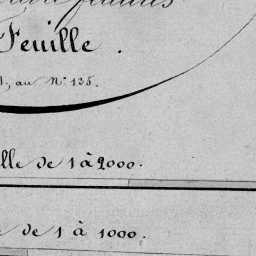 Feuille .
au N° 135.
lle de 1 à 2000.
de 1 à 1000.